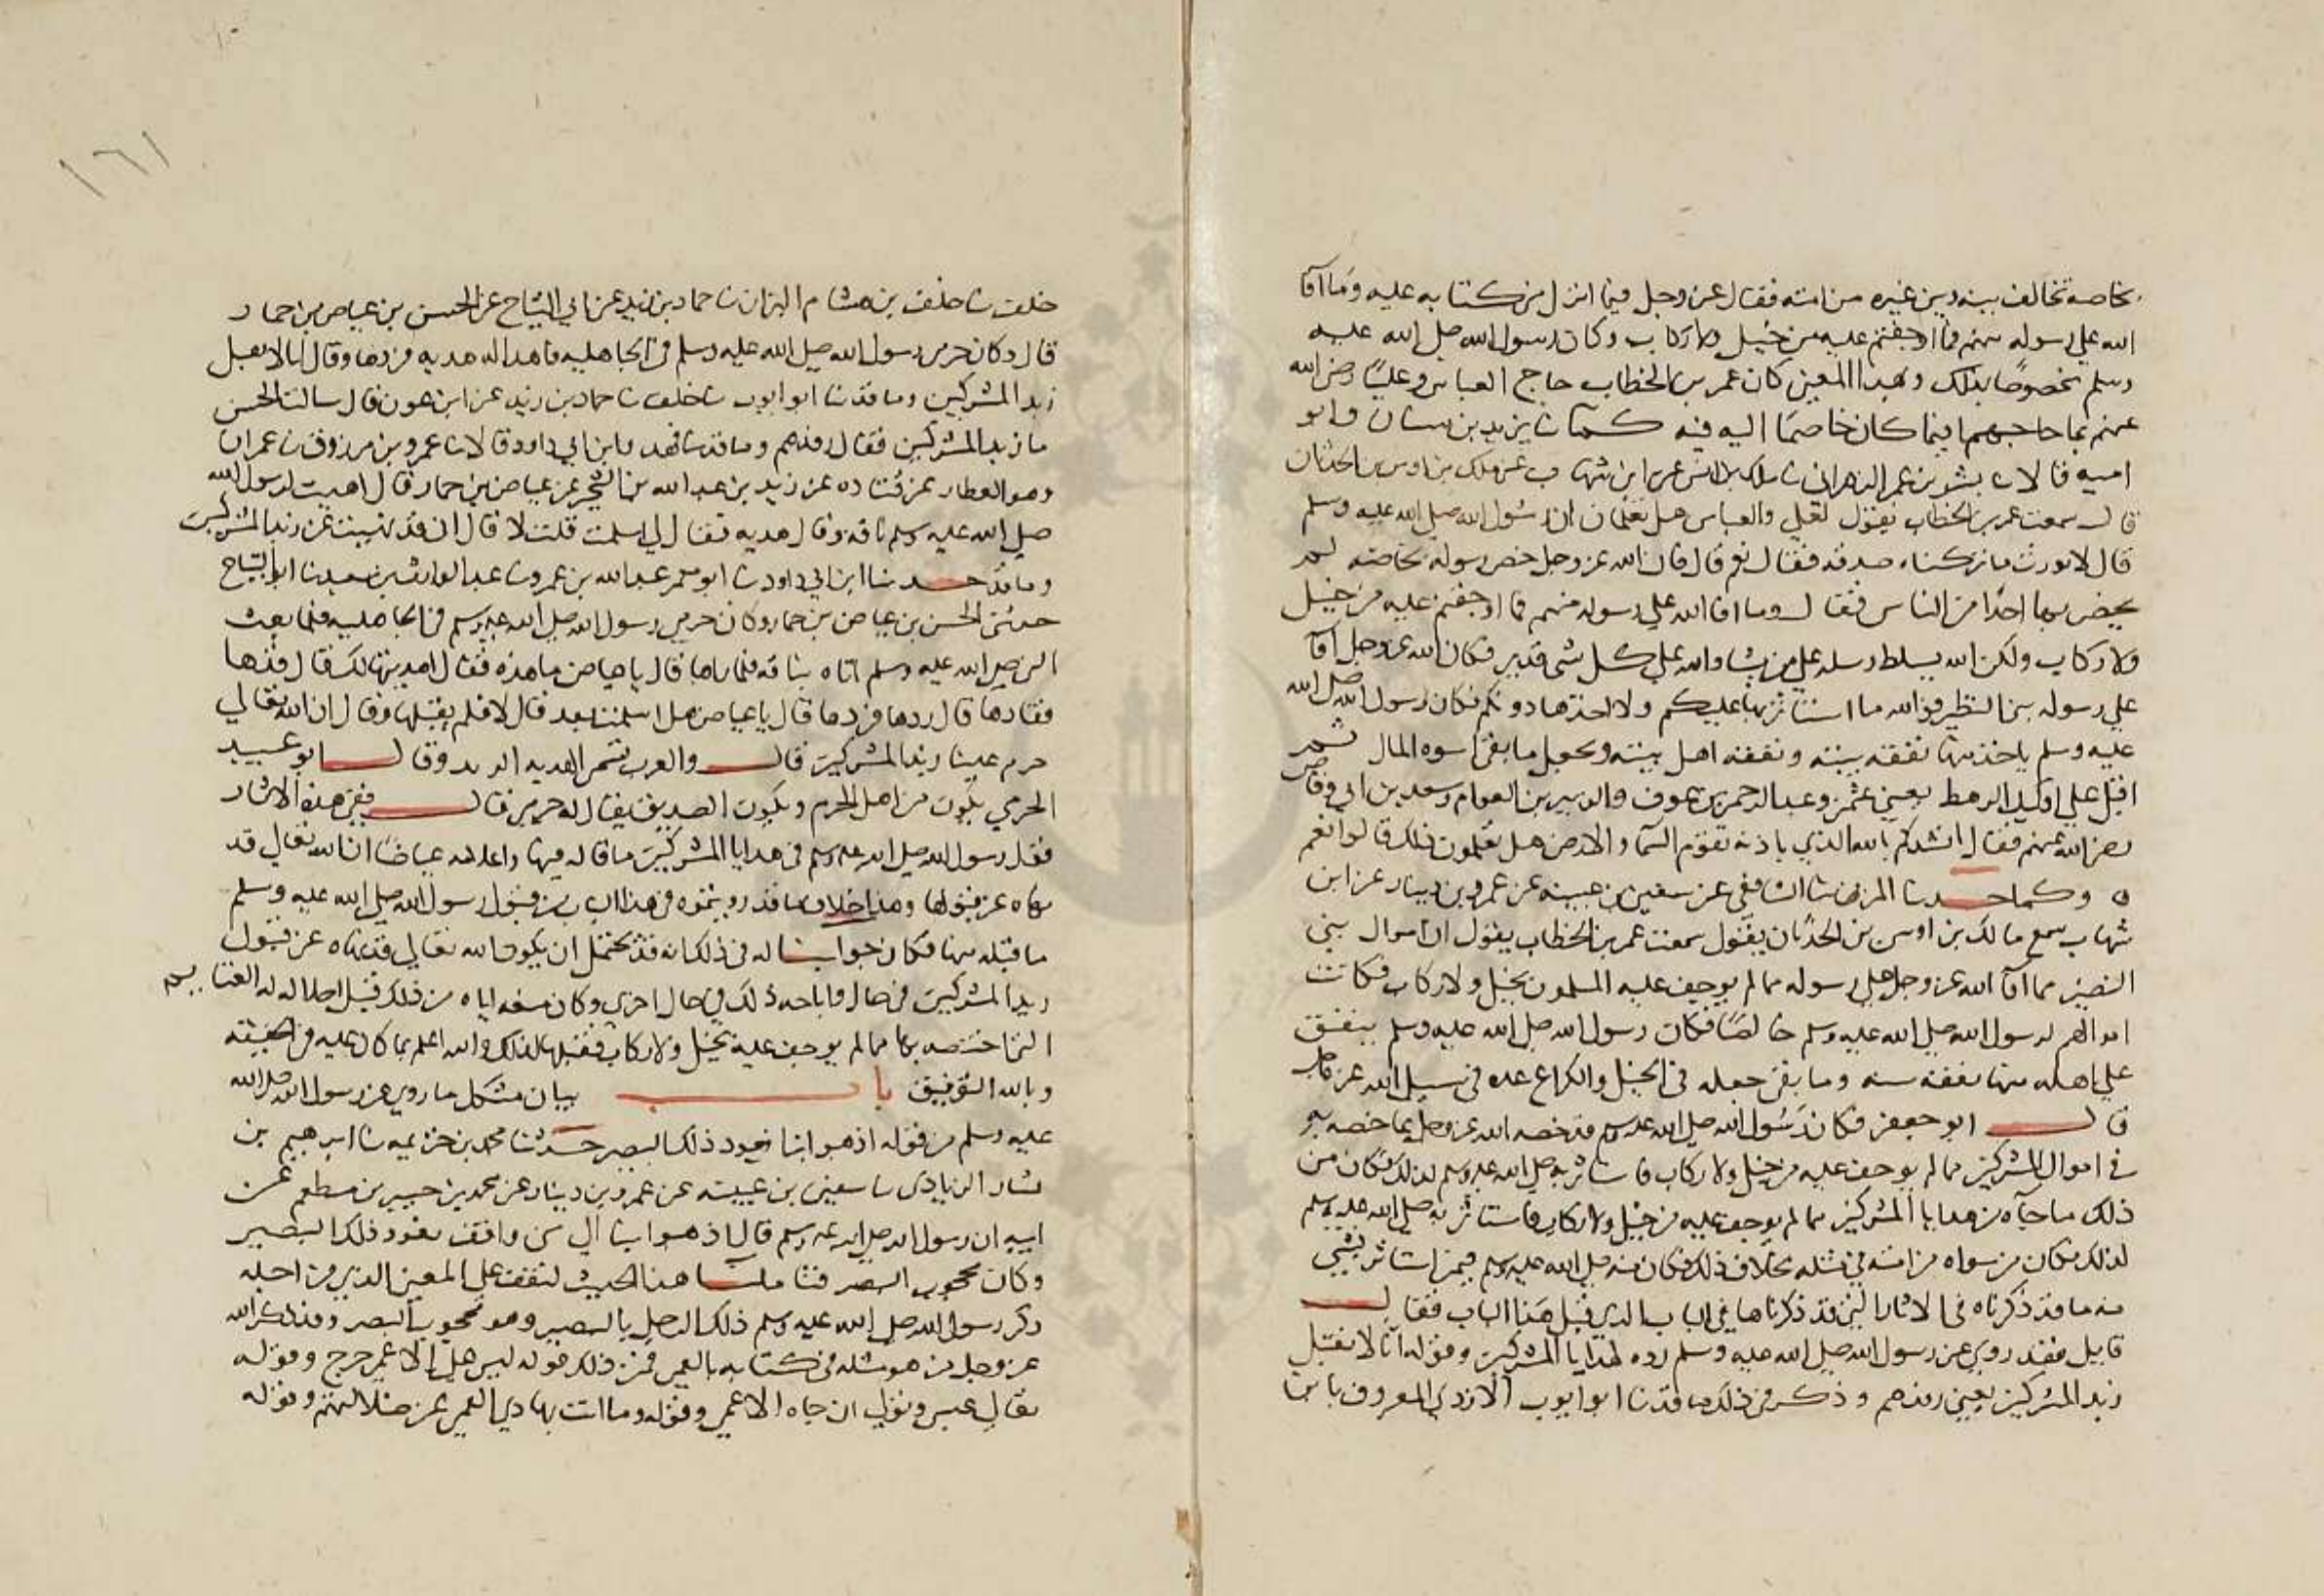 بخاصة تخالف بينه وبين غيره من امته فقال عز وجل فيما انزل من كتابه عليه وما افا
الله على رسوله منهم فما اوجفتم عليه من خيل ولا ركاب وكان رسول الله صلى الله عليه
وسلم مخصوصا بذلك وبهذا المعنى كان عمر بن الخطاب حاج العباس وعليا رضى الله
عنهم بما حاجهما فيما كان خاصما اليه فيه كما نا يزيد بن سنان وابو
امية قالا نا بشر بن عمر الزهراني نا ملك بن انس عن ابن شهاب عن ملك بن اوس بن الحدثان
قال سمعت عمر بن الخطاب يقول لعلي والعباس هل تعلمان ان رسول الله صلى الله عليه وسلم
قال لا نورث ما تركناه صدقة فقال نعم قال فان الله عز وجل خص رسوله بخاصة لم
يخص بها احدا من الناس فقال وما افا الله على رسوله منهم فما اوجفتم عليه من خيل
ولا ركاب ولكن الله يسلط رسله على من يشا والله على كل شى قدير فكان الله عز وجل افا
على رسوله بني النظير فوالله ما استاثر بها عليكم ولا اخذها دونكم فكان رسول الله صلى الله
عليه وسلم ياخذ منها نفقة بيته ونفقة اهل بيته ويجعل ما بقى اسوة المال ثم
اقبل على اوليك الرهط يعني عثمن وعبد الرحمن بن عوف والزبير بن العوام وسعد بن ابي وقاص
رضى الله عنهم فقال انشدكم بالله الذي باذنه تقوم السما والارض هل تعلمون ذلك قالوا نعم
ه وكما حدثنا المزني نا الشافعي عن سفين بن عيينة عن عمرو بن دينار عن ابن
شهاب سمع مالك بن اوس بن الحدثان يقول سمعت عمر بن الخطاب يقول ان اموال بني
النضير مما افا الله عز وجل على رسوله مما لم يوجف عليه المسلمون بخيل ولا ركاب فكانت
اموالهم لرسول الله صلى الله عليه وسلم خالصا فكان رسول الله صلى الله عليه وسلم ينفق
على اهله منها نفقة سنه وما بقى جعله في الخيل والكراع عده في سبيل الله عز وجل
قال ابو جعفر فكان رسول الله صلى الله عليه وسلم قد خصه الله عز وجل بما خصه به
في اموال المشركين مما لم يوجف عليه من خيل ولا ركاب فاستاثر به صلى الله عليه وسلم لذلك فكان من
ذلك ما جاه من هدايا المشركين مما لم يوجف عليه من خيل ولا ركاب فاستاثر به صلى الله عليه وسلم
لذلك فكان من سواه من امته في مثله بخلاف ذلك فكان منه صلى الله عليه وسلم فيمن استاثر بشي
منه ما قد ذكرناه في الاثار التي قد ذكرناها في الباب الذي قبل هذا الباب فقال
قايل فقد روي عن رسول الله صلى الله عليه وسلم رده لهدايا المشركين وقوله انا لا نقبل
زبد المشركين يعني رفدهم وذكر في ذلك ما قد نا ابو ايوب الازدي المعروف بابن
خلف نا خلف بن هشام البزار نا حماد بن زيد عن ابي التياح عن الحسن بن عياض بن حمار
قال وكان حرمى رسول الله صلى الله عليه وسلم في الجاهلية فاهدا اليه هدية فردها وقال انا لا نقبل
زبد المشركين وما قد نا ابو ايوب نا خلف نا حماد بن زيد عن ابن عون قال سالت الحسن
ما زبد المشركين فقال رفدهم وما قد نا فهد وابن ابي داود قالا نا عمرو بن مرزوق نا عمران
وهو القطان عن قتاده عن يزيد بن عبد الله بن الشخير عن عياض بن حمار قال اهديت لرسول الله
صلى الله عليه وسلم ناقة وقال هدية فقال لي اسلمت قلت لا قال اني قد نهيت عن زبد المشركين
وما قد حدثنا ابن ابي داود نا ابو معمر عبد الله بن عمرو نا عبد الوارث بن سعيد نا ابو التياح
حدثني الحسن بن عياض بن حمار وكان حرمي رسول الله صلى الله عليه وسلم في الجاهلية فلما بعث
النبي صلى الله عليه وسلم اتاه بناقة فلما راها قال يا عياض ما هذه فقال اهديتها لك قال قدها
فقادها قال ردها فردها قال يا عياض هل اسلمت بعد قال لا فلم يقبلها وقال ان الله تعالى
حرم علينا زبد المشركين قال والعرب تسمى الهدية الزبد وقال ابو عبيد
الحرمي يكون من اهل الحرم ويكون الصديق يقال له حرمى قال ففي هذه الاثار
فقد رسول الله صلى الله عليه وسلم في هدايا المشركين ما قاله فيها واعلامه عياضا ان الله تعالى قد
نهاه عن قبولها وهذا خلاف ما قد رويتموه في هذا الباب من قبول رسول الله صلى الله عليه وسلم
ما قبله منها فكان جوابنا له في ذلك انه قد يحتمل ان يكون الله تعالى قد نهاه عن قبول
زبد المشركين في حال واباحه ذلك في حال اخرى وكان منعه اياه من ذلك قبل احلاله له الغنايم
التي اختصه بها مما لم يوجف عليه بخيل ولا ركاب فقبلها لذلك والله اعلم بما كان عليه في الحقيقة
وبالله التوفيق باب بيان مشكل ما روي عن رسول الله صلى الله
عليه وسلم من قوله اذهبوا بنا نعود ذلك البصير حدثنا محمد بن خزيمه نا ابرهيم بن
بشار الرمادى نا سفين بن عيينه عن عمرو بن دينار عن محمد بن جبير بن مطعم عن
ابيه ان رسول الله صلى الله عليه وسلم قال اذهبوا بنا الى بني واقف نعود ذلك البصير
وكان محجوب البصر فتاملنا هذا الحديث لنقف على المعنى الذي من اجله
ذكر رسول الله صلى الله عليه وسلم ذلك الرجل بالبصير وهو محجوب البصر وقد ذكر الله
عز وجل من هو مثله في كتابه بالعمى فمن ذلك قوله ليس على الاعمى حرج وقوله
تعالى عبس وتولى ان جاه الاعمى وقوله وما انت بهادي العمى عن ضلالتهم وقوله
١٦١